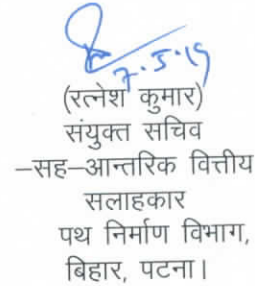 7.5.19
(रत्नेश कुमार)
संयुक्त सचिव
–सह–आन्तरिक वित्तीय
सलाहकार
पथ निर्माण विभाग,
बिहार, पटना।